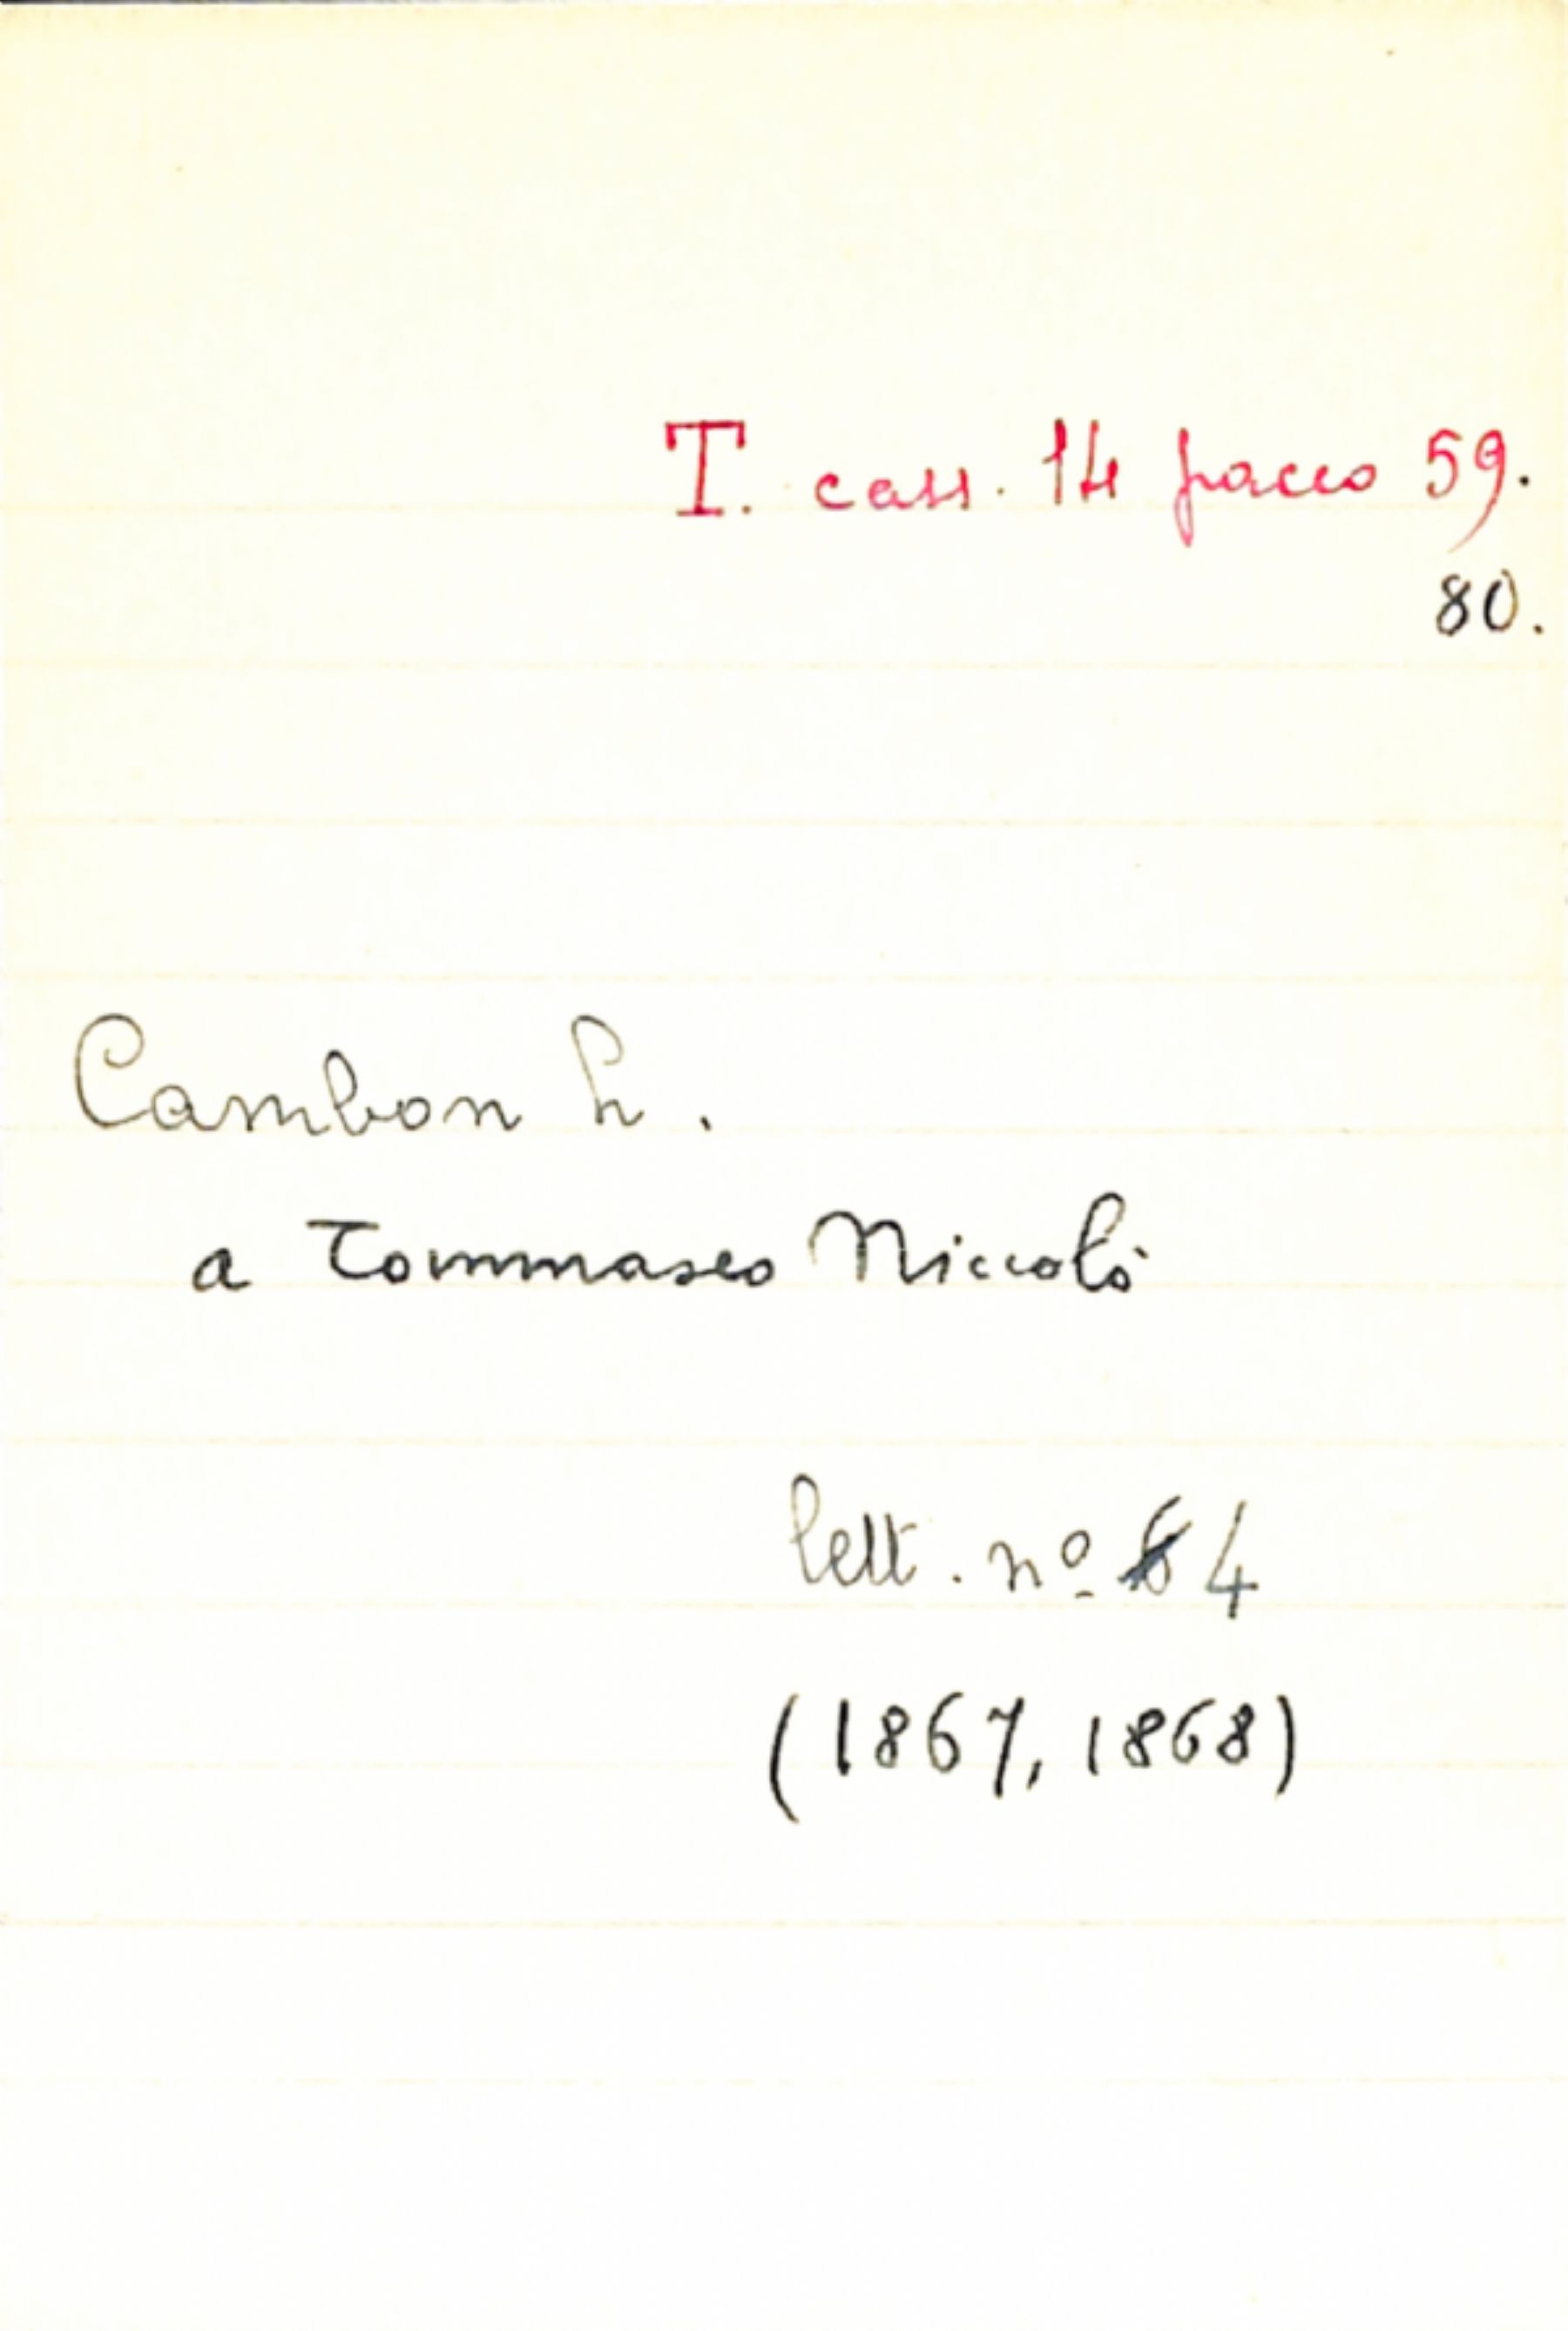 T. cass. 14 pacco 59.
80.
Cambon L.
a Tommaseo Niccolò
lett. nº 4
(1867, 1868)